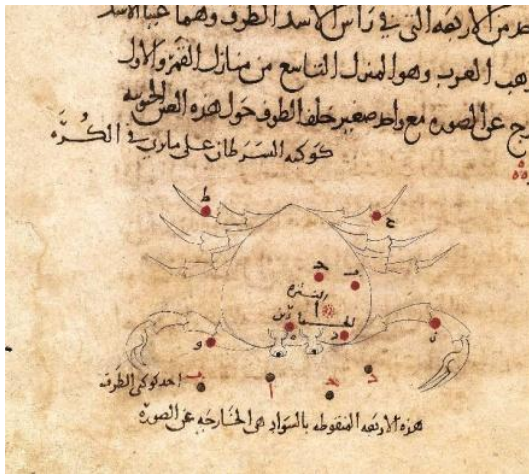 من الاربعه التى فى رأس الاسد الطرف وهما عينا الاسد
العرب وهو المنزل التاسع من منازل القمر والاول
عن الصوره مع واحد صغير خلف الطرف حول هذه
كوكبه السرطان على ما يرى فى الكُرَه
ط
ح
ب
النثره
د
و
ز
احد كوكبى الطرفه
ب
ا
ج
د
هذه الاربعه المنقوطه بالسواد هى الخارجه عن الصوره